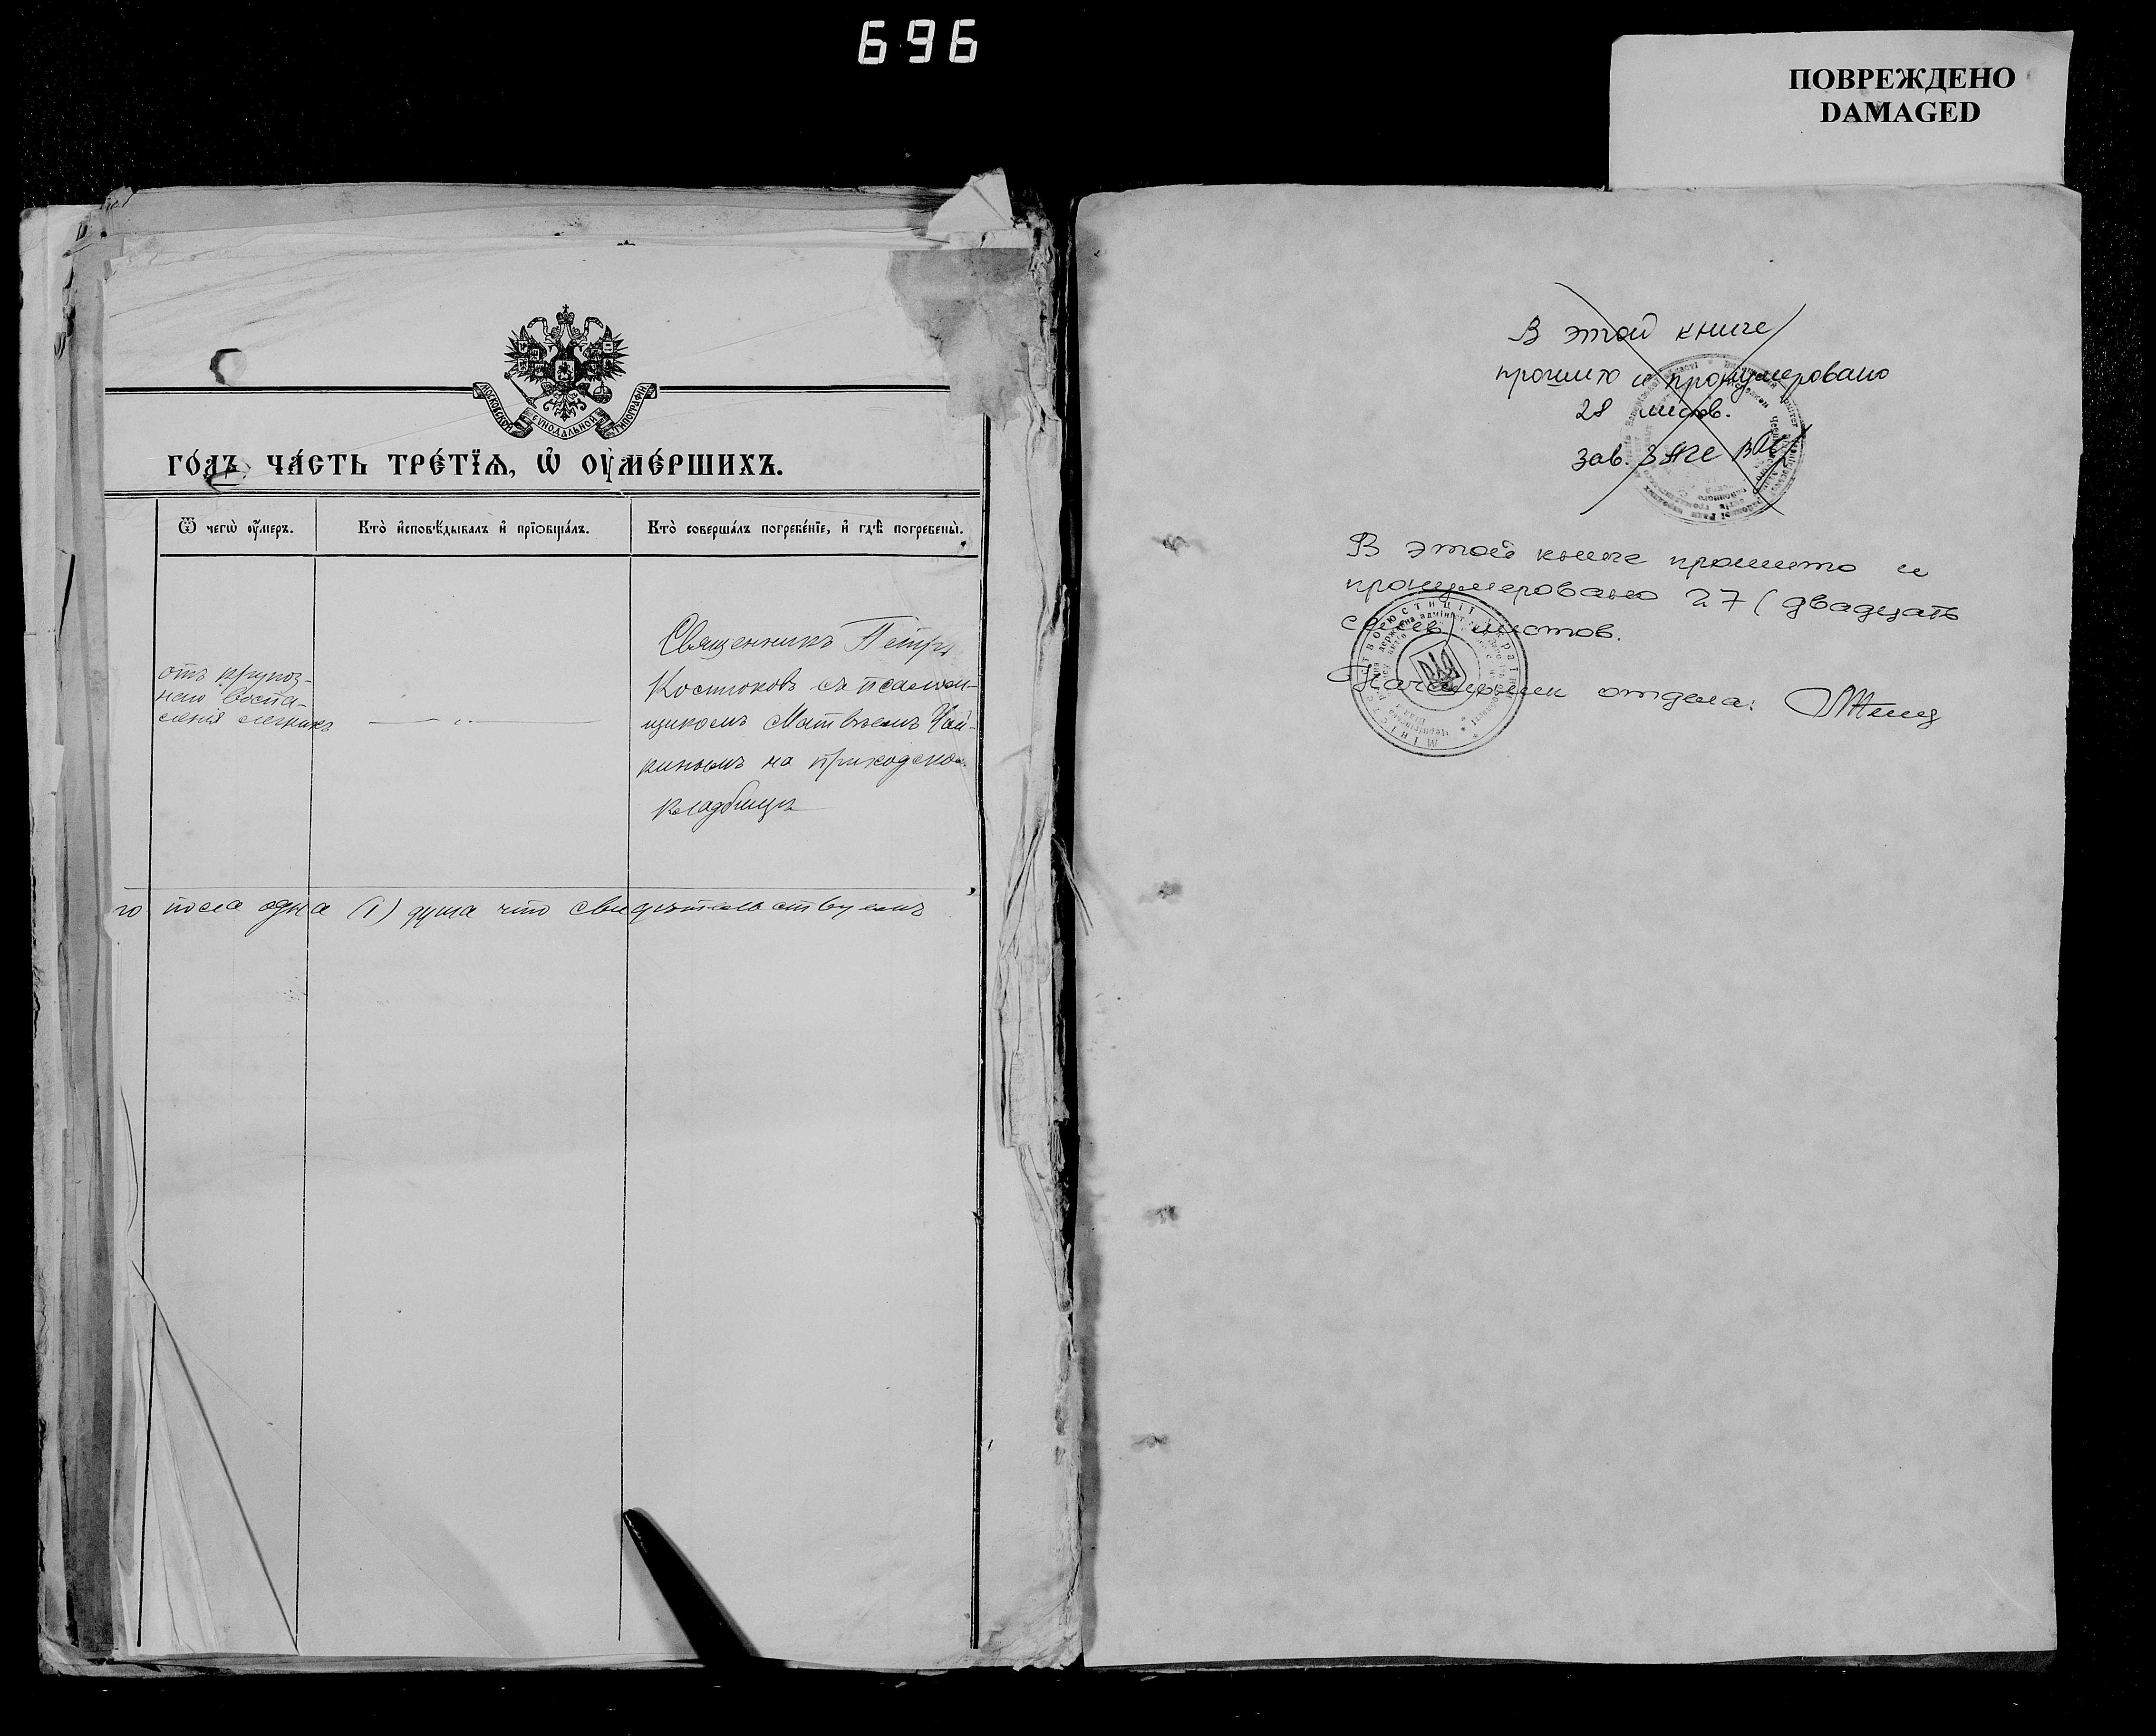 696
ПОВРЕЖДЕНО
DAMAGED
МОСКОВСКОЙ СѴНОДАЛЬНОЙ ТИПОГРАФІИ
ГО́ДЪ ЧА́СТЬ ТРЕ́ТЇѦ, Ѡ҆ ОУ҆МЕ́РШИХЪ.
Ѿ чегѡ̀ оу҆́меръ.
Кто̀ и҆сповѣ́дывалъ и҆ прїѡбща́лъ.
Кто̀ соверша́лъ погребе́нїе, и҆ гдѣ̀ погребены̀.
отъ крупоз-
наго воспа-
ленія легкихъ
Священникъ Петръ
Костюковъ съ псалом-
щикомъ Матвѣемъ
на приходском
кладбищѣ
го пола одна (1) душа что свидѣтельствуемъ
В этой книге
прошито и пронумеровано
28 листов.
Зав. ЗАГС
В этой книге прошито и
пронумеровано 27 (двадцать
семь) листов.
Начальник отдела:
Міністерство юстиції України